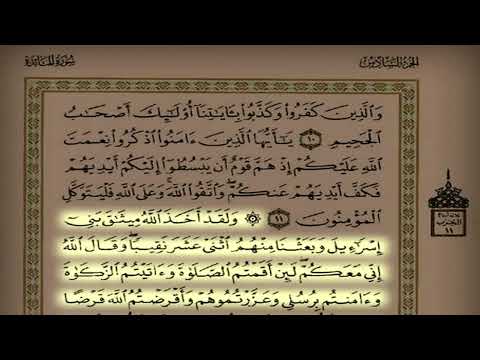 سُورَةُ المَائدَة
الجزء السَّادِسُ
وَالَّذِينَ كَفَرُوا۟ وَكَذَّبُوا۟ بِـَٔايَـٰتِنَآ أُو۟لَـٰٓئِكَ أَصْحَـٰبُ
ٱلْجَحِيمِ ١٠ يَـٰٓأَيُّهَا ٱلَّذِينَ ءَامَنُوا۟ ٱذْكُرُوا۟ نِعْمَتَ
ٱللَّهِ عَلَيْكُمْ إِذْ هَمَّ قَوْمٌ أَن يَبْسُطُوٓا۟ إِلَيْكُمْ أَيْدِيَهُمْ
فَكَفَّ أَيْدِيَهُمْ عَنكُمْ ۖ وَٱتَّقُوا۟ ٱللَّهَ ۚ وَعَلَى ٱللَّهِ فَلْيَتَوَكَّلِ
ٱلْمُؤْمِنُونَ ١١ ۞ وَلَقَدْ أَخَذَ ٱللَّهُ مِيثَـٰقَ بَنِىٓ
إِسْرَٰٓءِيلَ وَبَعَثْنَا مِنْهُمُ ٱثْنَىْ عَشَرَ نَقِيبًا ۖ وَقَالَ ٱللَّهُ
إِنِّى مَعَكُمْ ۖ لَئِنْ أَقَمْتُمُ ٱلصَّلَوٰةَ وَءَاتَيْتُمُ ٱلزَّكَوٰةَ
وَءَامَنتُم بِرُسُلِى وَعَزَّرْتُمُوهُمْ وَأَقْرَضْتُمُ ٱللَّهَ قَرْضًا
الحِزْب
١١